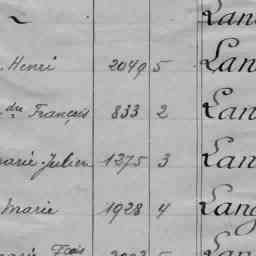 Lan
Henri 2049 5 Lan
du François 833 2 Lan
arie-Julien 1275 3 Lan
Marie 1928 4 Lang
Fçois Lan